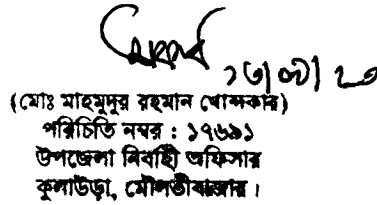 (মোঃ মাহমুদুর রহমান খোন্দকার)
পরিচিতি নম্বর : ১৭৬৯১
উপজেলা নির্বাহী অফিসার
কুলাউড়া, মৌলভীবাজার।